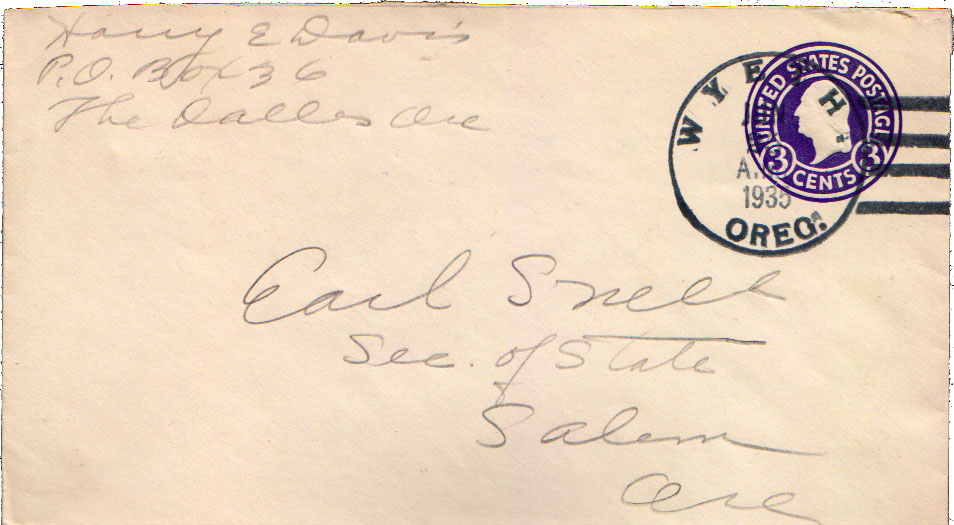 Harry E Davis
P.O. Box 36
The Dalles Ore
WYETH
A.M.
1935
OREG.
UNITED STATES POSTAGE
3 CENTS 3
Earl Snell
Sec. of State
Salem
Ore